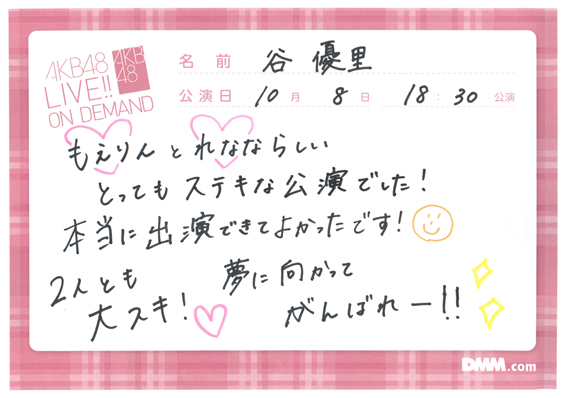 AKB48
LIVE!!
ON DEMAND
AKB
48
名前 谷 優里
公演日 10月 8日 18:30 公演
もえりんとれなならしい
とってもステキな公演でした!
本当に出演できてよかったです!
2人とも
大スキ!
夢に向かって
がんばれー!!
DMM.com